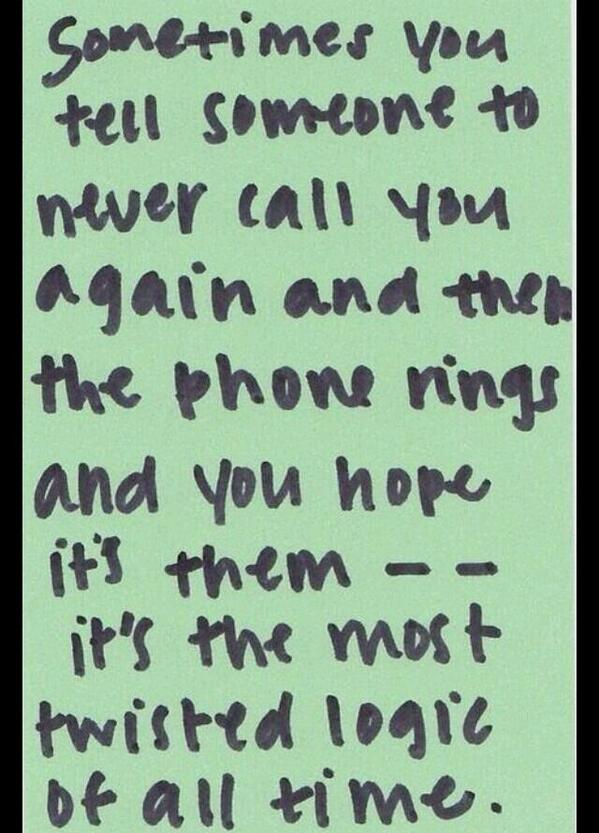 Sometimes you
tell someone to
never call you
again and then
the phone rings
and you hope
it's them --
it's the most
twisted logic
of all time.